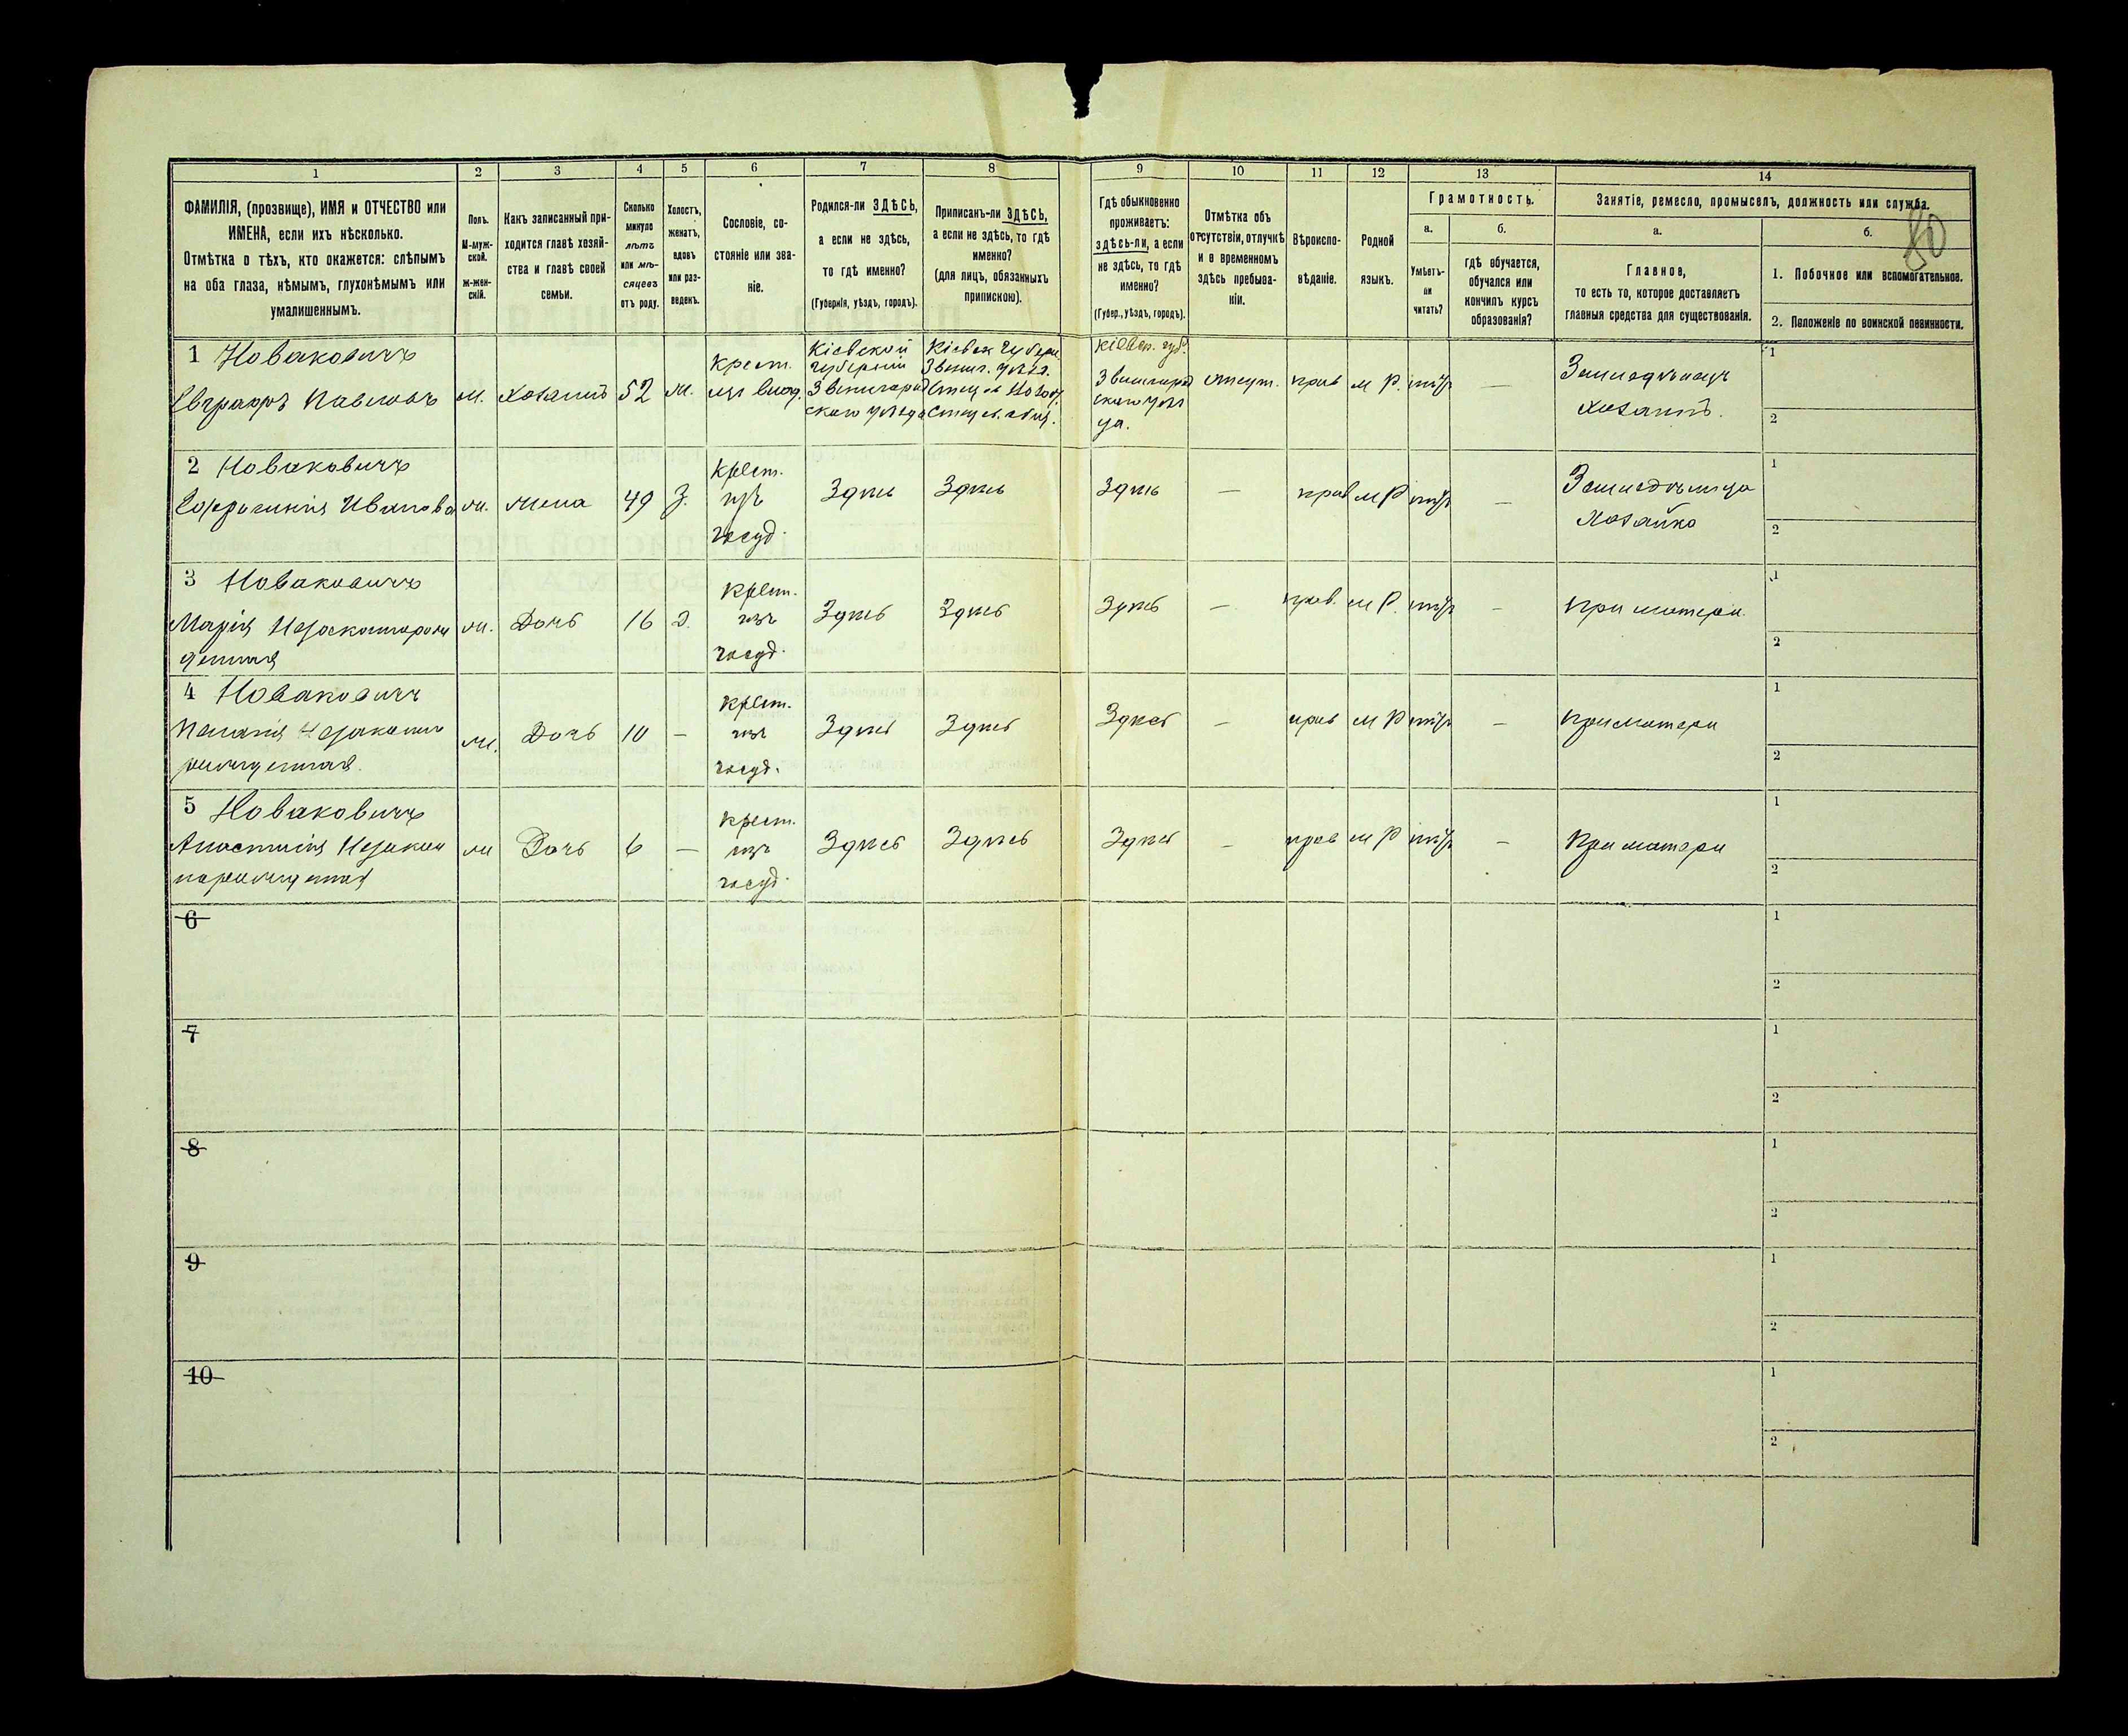 1 2 3 4 5 6 7 8 9 10 11 12 13 14
ФАМИЛІЯ, (прозвище), ИМЯ и ОТЧЕСТВО или
ИМЕНА, если ихъ нѣсколько.
Отмѣтка о тѣхъ, кто окажется: слѣпымъ
на оба глаза, нѣмымъ, глухонѣмымъ или
умалишеннымъ.
Полъ.
М-муж-
ской.
Ж-жен-
скій.
Какъ записанный при-
ходится главѣ хозяй-
ства и главѣ своей
семьи.
Сколько
минуло
лѣтъ
или мѣ-
сяцевъ
отъ роду.
Холостъ,
женатъ,
вдовъ
или раз-
веденъ.
Сословіе, со-
стояніе или зва-
ніе.
Родился-ли ЗДѢСЬ,
а если не здѣсь,
то гдѣ именно?
(Губернія, уѣздъ, городъ).
Приписанъ-ли ЗДѢСЬ,
а если не здѣсь, то гдѣ
именно?
(для лицъ, обязанныхъ
припискою).
Гдѣ обыкновенно
проживаетъ:
здѣсь-ли, а если
не здѣсь, то гдѣ
именно?
(Губер., уѣздъ, городъ).
Отмѣтка объ
отсутствіи, отлучкѣ
и о временномъ
здѣсь пребыва-
ніи.
Вѣроиспо-
вѣданіе.
Родной
языкъ.
Грамотность.
а.
Умѣетъ-
ли
читать?
б.
гдѣ обучается,
обучался или
кончилъ курсъ
образованія?
Занятіе, ремесло, промыселъ, должность или служба.
а.
Главное,
то есть то, которое доставляетъ
главныя средства для существованія.
б.
80
1. Побочное или вспомогательное.
2. Положеніе по воинской повинности.
1 Новаковичъ
Евграфъ Павловъ
м.
Хозяинъ
52
Крест.
Кіевской
губерніи
Звенигород
скаго уѣзда
Кіевск губерн
Кіевск. губ.
Звенигород
скаго уѣз
да.
отсут.
прав
м Р.
нѣтъ
—
Земледѣлецъ
Хозяинъ.
1
2
2 Новаковичъ
Иванова
жена
49
З.
Крест.
изъ
госуд.
Здѣсь
Здѣсь
Здѣсь
—
прав
м Р
нѣтъ
—
Земледѣлица
Хозяйка
1
2
3 Новаковичъ
Марія Незаконнорож
денная
ж.
Дочь
16
Д.
Крест.
изъ
госуд.
Здѣсь
Здѣсь
Здѣсь
—
прав.
м Р.
нѣтъ
—
при матери.
1
2
4 Новаковичъ
Пелагія Незаконно
рожденная.
ж.
Дочь
10
—
Крест.
изъ
госуд.
Здѣсь
Здѣсь
Здѣсь
—
прав
м Р
нѣтъ
—
при матери
1
2
5 Новаковичъ
Анастасія Незакон
норожденная
ж
Дочь
6
—
Крест.
изъ
госуд.
Здѣсь
Здѣсь
Здѣсь
—
прав
м Р
нѣтъ
—
При матери
1
2
6
1
2
7
1
2
8
1
2
9
1
2
10
1
2